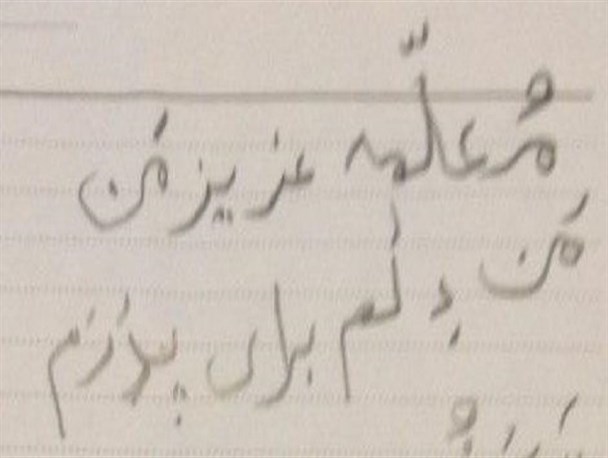 مُعلّمه عزیز مَن
مَن دِلَم برای پدَرَم